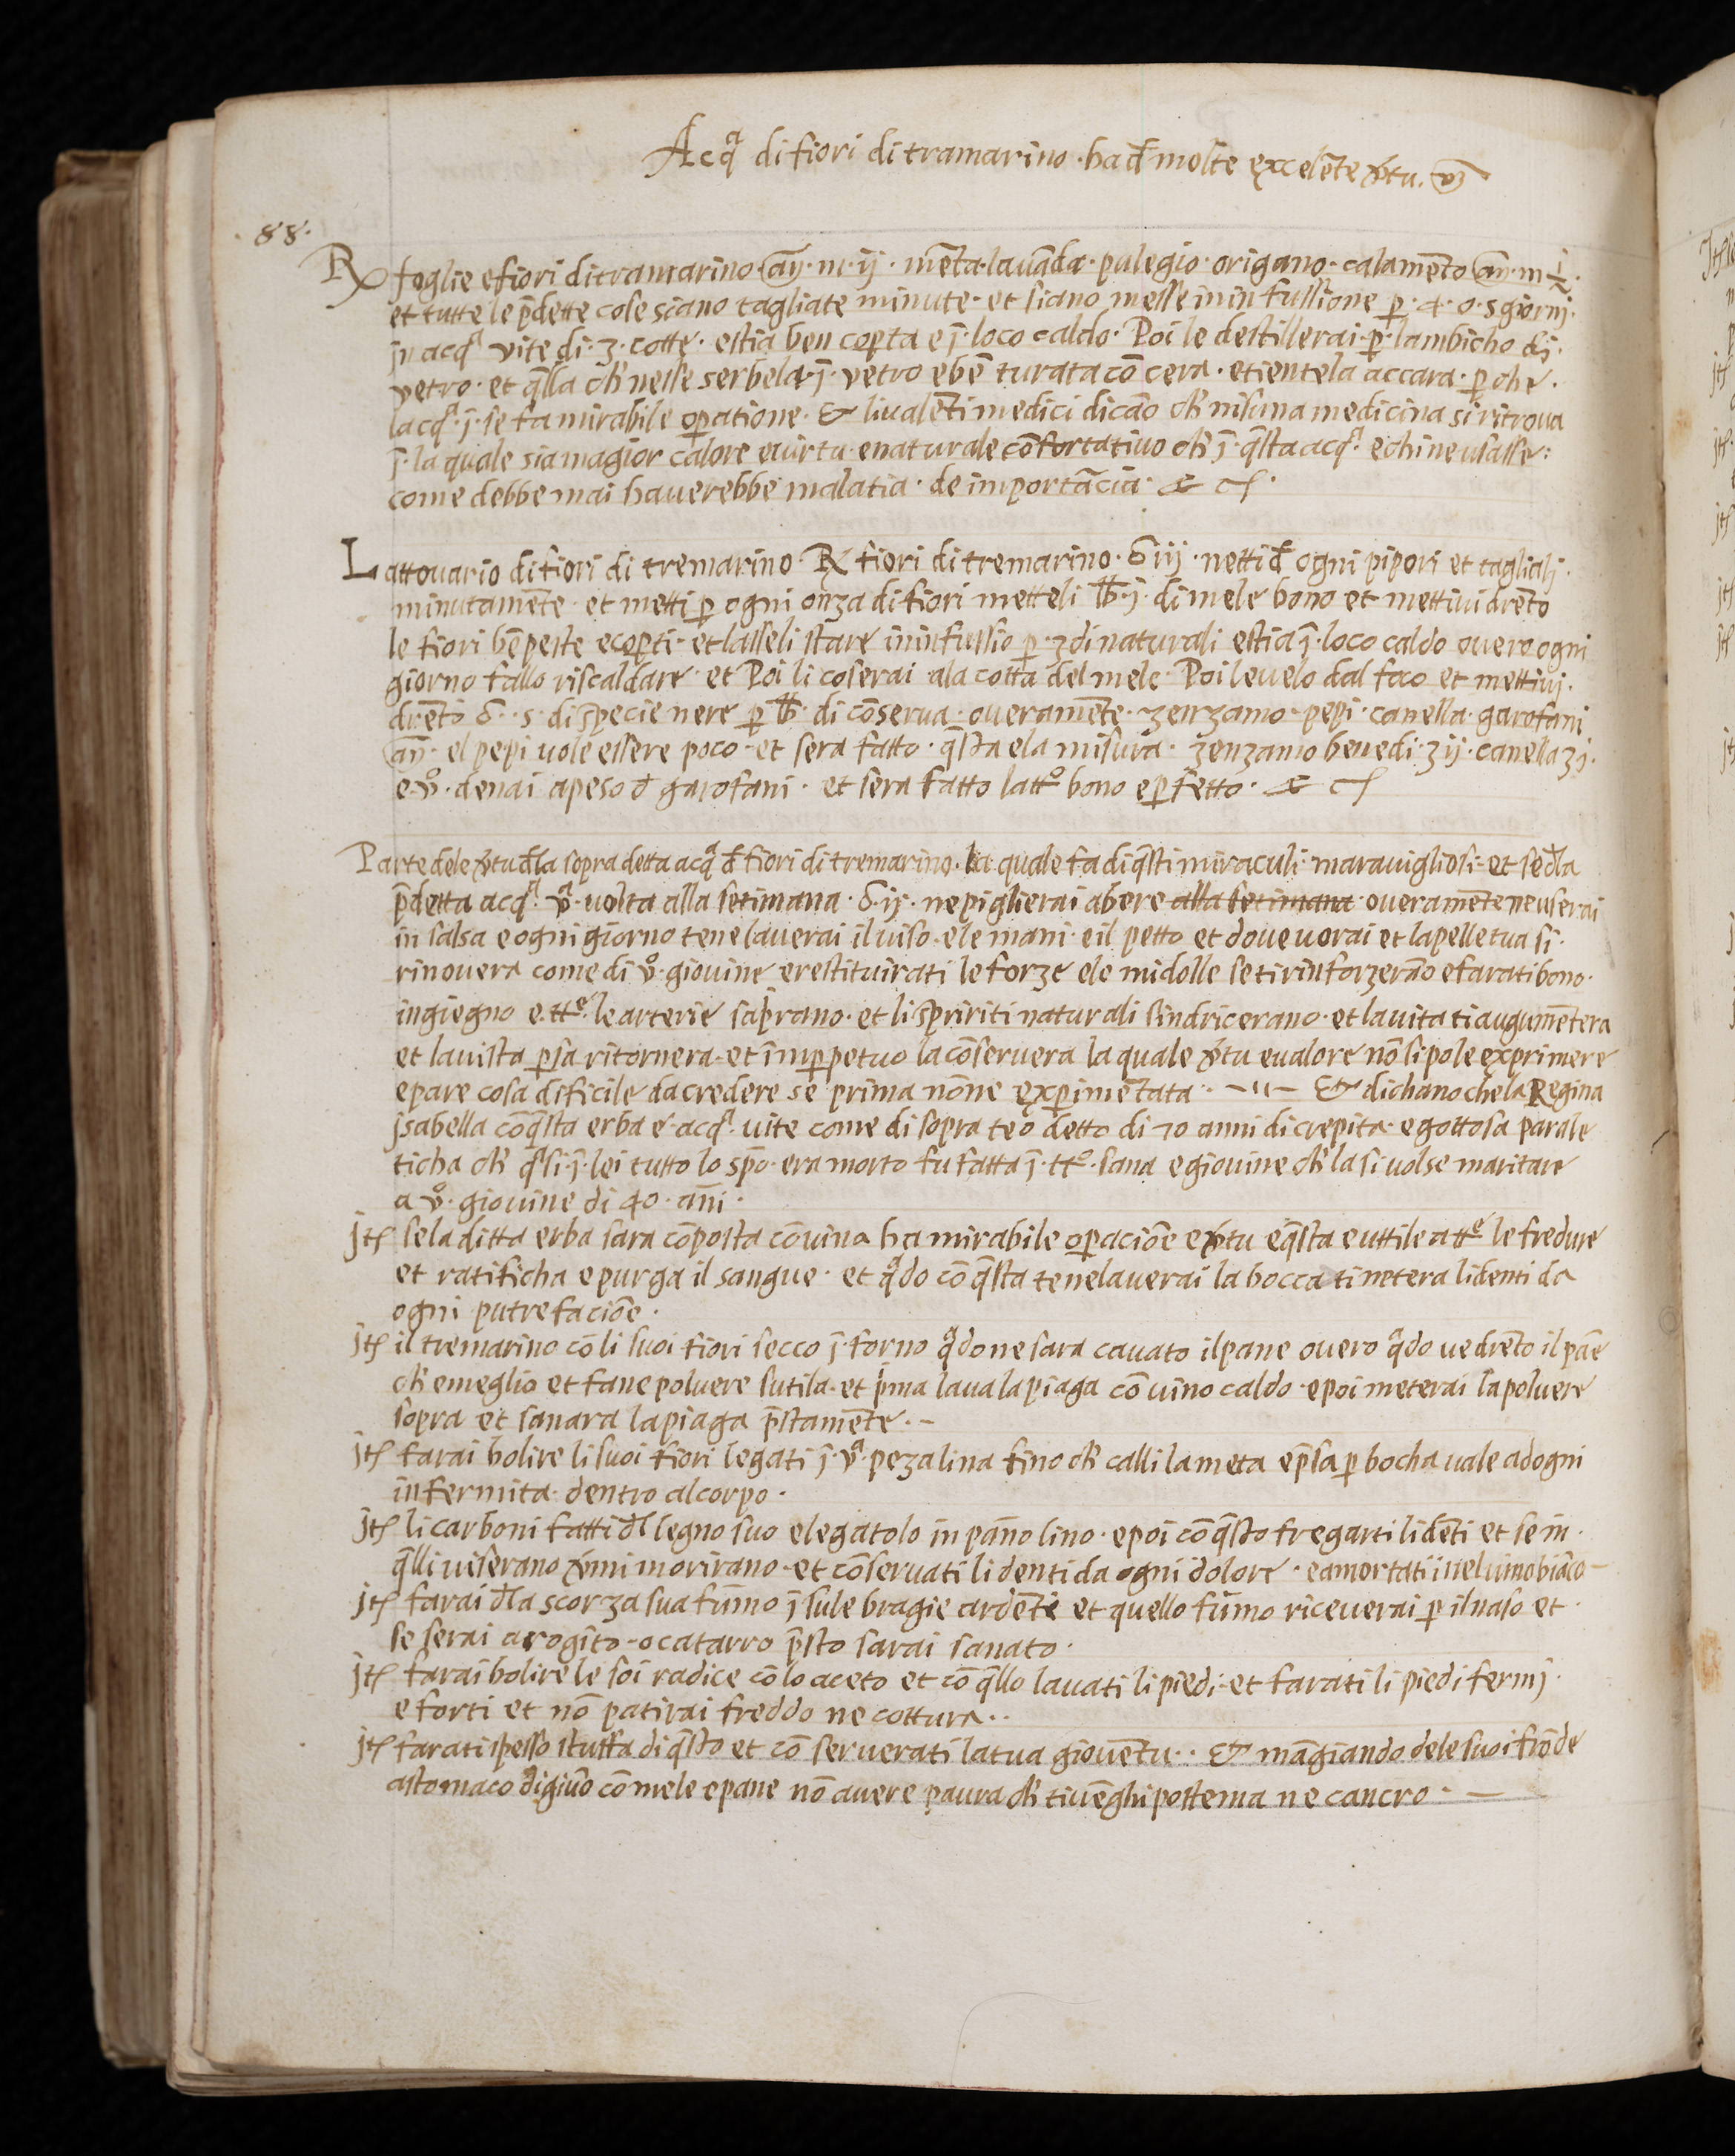 Acqᵃ di fiori di tramarino · ha đ molte excelēte v̄tu.
· 88 ·
Rx foglie e fiori di tramarino · añ · m · ij · mēta · lauāda · pulegio · origano · calamēto añ · m ½ ·
et tutte le p̄dette cose siano tagliate minute · et siano messe in infussione p̱ · 4 · o · 5 giornj ·
jn acqᵃ vite di · 3 · cotte · estia ben cop̱ta e ȷ̄ · loco caldo · Poi le destillerai · p̱ · lambicho dj ·
vetro · et q̄lla ch̄ nesse serbela · ȷ̄ · vetro e bē turata cō cera · etientela accara · p̱ che ·
lacqᵃ · ȷ̄ · se fa mirabile op̱atione · & li ualēti medici dicāo ch̄ nisuna medicina si ritroua
ȷ̄ · la quale sia magior calore e uirtu e naturale cōfortatiuo ch̄ ȷ̄ · q̄sta acqᵃ · e chi ne usasse :
come debbe mai hauerebbe malatia · de importācia · &
Lattouario di fiori di tremarino · Rx fiori di tremarino · iij · netti đ ogni pipori et tagliali ·
minutamēte · et metti p̱ ogni onza di fiori metteli ℔ · j · di mele bono et mettiui drēto
le fiori bē peste e cop̱ti · et lasseli stare in infussio p̱ · 3 di naturali estia ȷ̄ · loco caldo ouero ogni
giorno fallo riscaldare · et Poi li coserai ala cotta del mele · Poi leuelo dal foco et mettiuj ·
drēto · s · di specie nere p̱ ℔ · di cōserua · oueramēte · zenzamo · pepi · canella · garofani
añ · el pepi uole essere poco · et sera fatto · q̄sta e la misura · zenzamo benedi · ʒ ij · canella ʒ j ·
e · v̊ · denai apeso đ garofani · et sera fatto lattᵒ bono e p̱fetto · &
Parte dele v̄tu đla sopra detta acqᵃ đ fiori di tremarino · la quale fa di q̄sti miraculi · marauigliosi · et se đla
p̄detta acqᵃ · vᵃ · volta alla setimana · ij · ne piglierai a bere alla setimana · oueramēte ne userai
in salsa e ogni giorno tene lauerai il uiso · e le mani · e il petto et doue uorai et la pelle tua si ·
rinouera come di v̊ · giouine e restituirati le forze e le midolle se ti rinforzerāo e farati bono ·
ingiegno e · ttᵉ · le arterie saprano · et li spririti naturali sindricerano · et la uita ti augumētera
et la uista p̱sa ritornera · et ī p̱petuo la cōseruera la quale v̄tu e ualore nō si pole exprimere
e pare cosa dificile da credere se prima nōne exp̱imētata · & dichano che la Regina
jsabella cō q̄sta erba e · acqᵃ · uite come di sopra te ō detto di 70 anni dicrepita · e gottosa parale
ticha ch̄ q̄si · ȷ̄ · lei tutto lo sp̄o · era morto fu fatta ȷ̄ · ttᵒ · sana e giouine ch̄ la si uolse maritare
a v̊ · giouine di 40 · āni ·
jtꝭ se la ditta erba sara cōposta cō uino ha mirabile op̱aciōe e v̄tu e q̄sta e uttile a ttᵉ le fredure
et ratificha e purga il sangue · et qᵃdo cō q̄sta tene lauerai la bocca ti netera li denti da
ogni putrefaciōe ·
jtꝭ il tremarino cō li suoi fiori secco ȷ̄ · forno qᵃdo ne sara cauato il pane ouero qᵃdo ue drēto il pāe
ch̄ e meglio et fane poluere sutila · et p̄ma laua la piaga cō uino caldo · e poi meterai la poluere
sopra et sanara la piaga p̄stamēte · –
jtꝭ farai bolire li suoi fiori legati ȷ̄ · vᵃ · peza lina fino ch̄ calli la meta e p̄sa p̱ bocha uale ad ogni
infermita · dentro al corpo ·
jtꝭ li carboni fatti đl legno suo e legatolo in pāno lino · e poi cō q̄sto fregarti li dēti et se in ·
q̄lli ui serano v̄mi morirano · et cōseruati li denti da ogni dolore · e amortati inel uino biāco –
jtꝭ farai đla scorza sua fūmo ȷ̄ su le bragie ardēte et quello fūmo riceuerai p̱ il naso et ·
se serai a rogito · o catarro p̄sto sarai sanato ·
jtꝭ farai bolire le soi radice cō lo aceto et cō q̄llo lauati li piedi · et farati li piedi fermj ·
e forti et nō patirai freddo ne cottura · ·
jtꝭ farati spesso stuffa di q̄sto et cō seruerati la tua giouētu · · & māgiando dele suoi frōde
a stomaco digiūo cō mele e pane nō auere paura ch̄ ti uēghi postema ne cancro · —